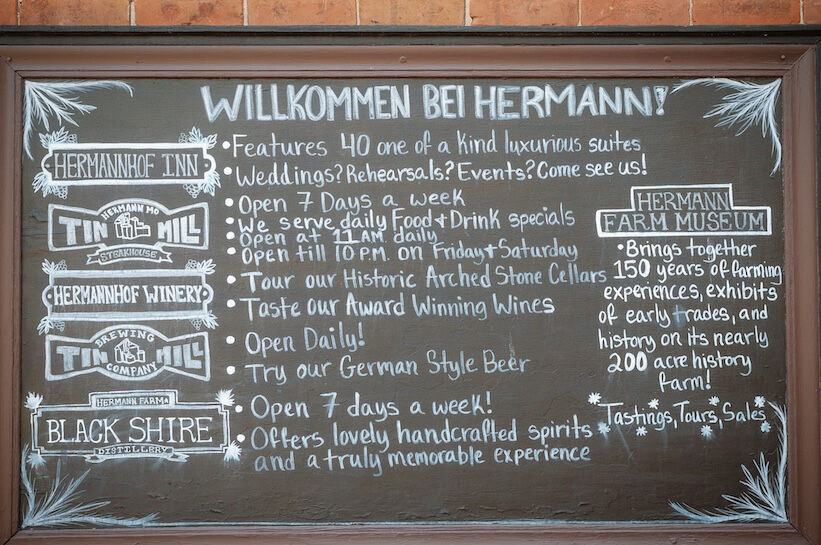 WILLKOMMEN BEI HERMANN!
HERMANNHOF INN
•Features 40 one of a kind luxurious suites
•Weddings? Rehearsals? Events? Come see us!
HERMANN MO
TIN MILL
STEAKHOUSE
•Open 7 Days a week
•We serve daily Food + Drink specials
•Open at 11AM daily
•Open till 10PM on Friday + Saturday
HERMANNHOF WINERY
•Tour our Historic Arched Stone Cellars
•Taste our Award Winning Wines
BREWING
TIN MILL
COMPANY
•Open Daily!
•Try our German Style Beer
HERMANN FARM
BLACK SHIRE
DISTILLERY
•Open 7 days a week!
•Offers lovely handcrafted spirits
and a truly memorable experience
HERMANN
FARM MUSEUM
•Brings together
150 years of farming
experiences, exhibits
of early trades, and
history on its nearly
200 acre history
farm!
Tastings, Tours, Sales